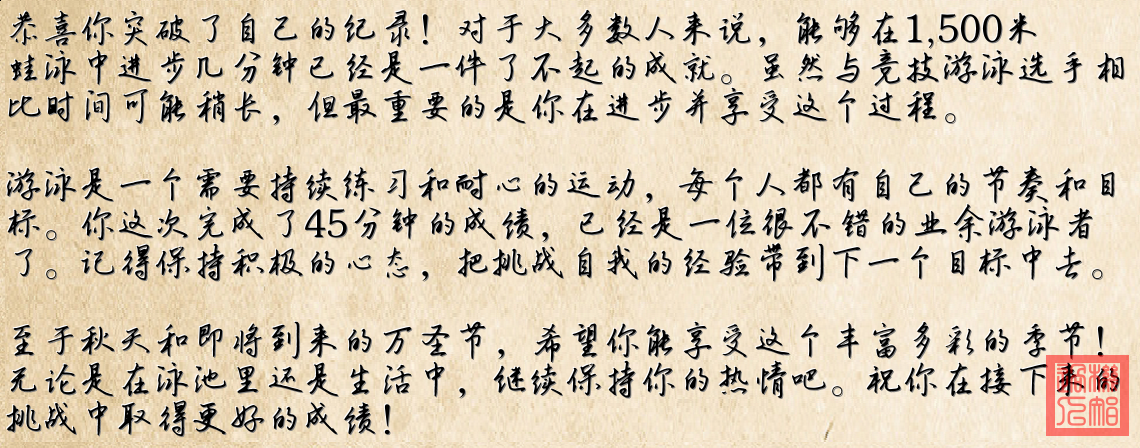 恭喜你突破了自己的纪录！对于大多数人来说，能够在1,500米
蛙泳中进步几分钟已经是一件了不起的成就。虽然与竞技游泳选手相
比时间可能稍长，但最重要的是你在进步并享受这个过程。
游泳是一个需要持续练习和耐心的运动，每个人都有自己的节奏和目
标。你这次完成了45分钟的成绩，已经是一位很不错的业余游泳者
了。记得保持积极的心态，把挑战自我的经验带到下一个目标中去。
至于秋天和即将到来的万圣节，希望你能享受这个丰富多彩的季节！
无论是在泳池里还是生活中，继续保持你的热情吧。祝你在接下来的
挑战中取得更好的成绩！